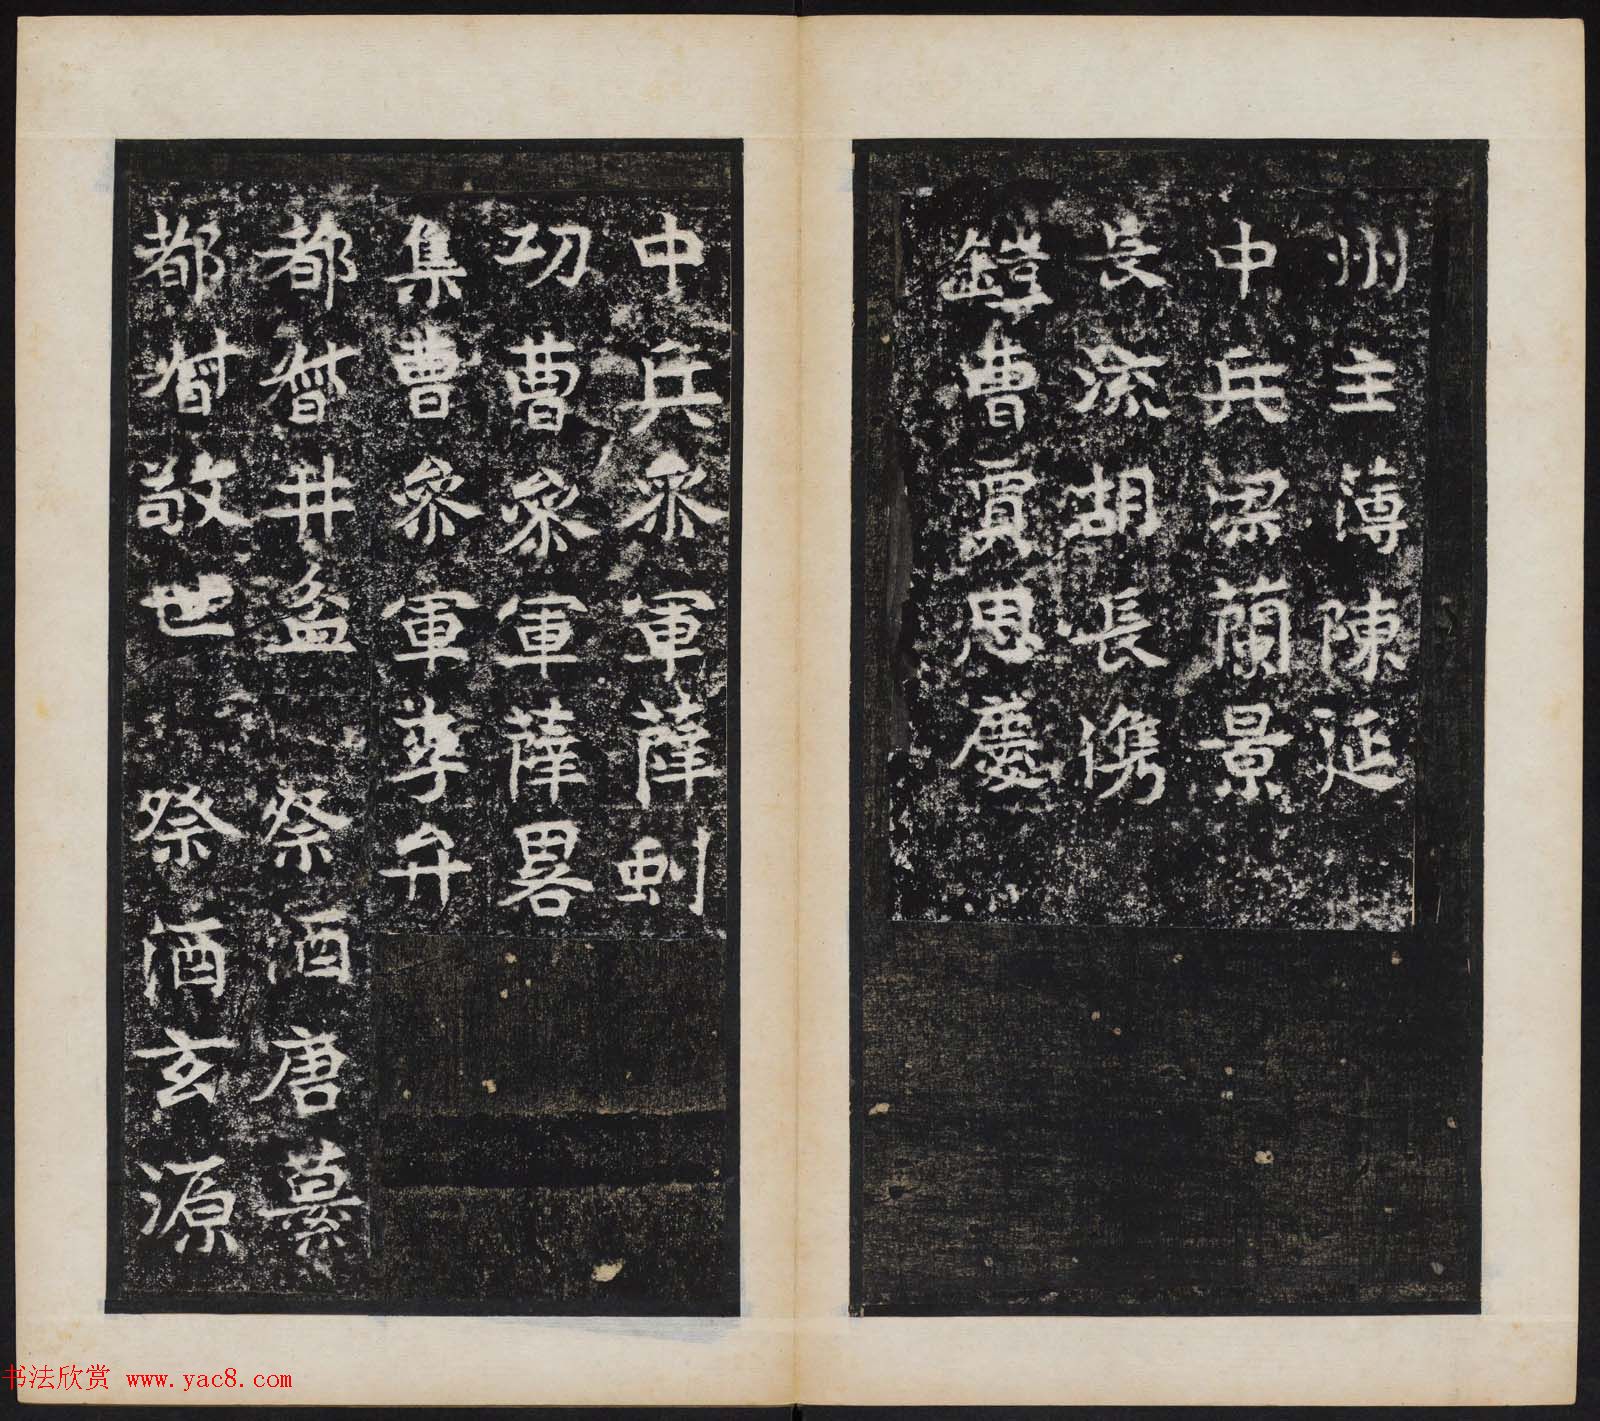 州主薄陳延
中兵梁蘭景
長流胡長儁
鎧曹賈思慶
中兵叅軍薛
功曹叅軍薛畧
集曹叅軍李弁
都督井 祭酒唐
都督敬世 祭酒玄源
书法欣赏 www.yac8.com